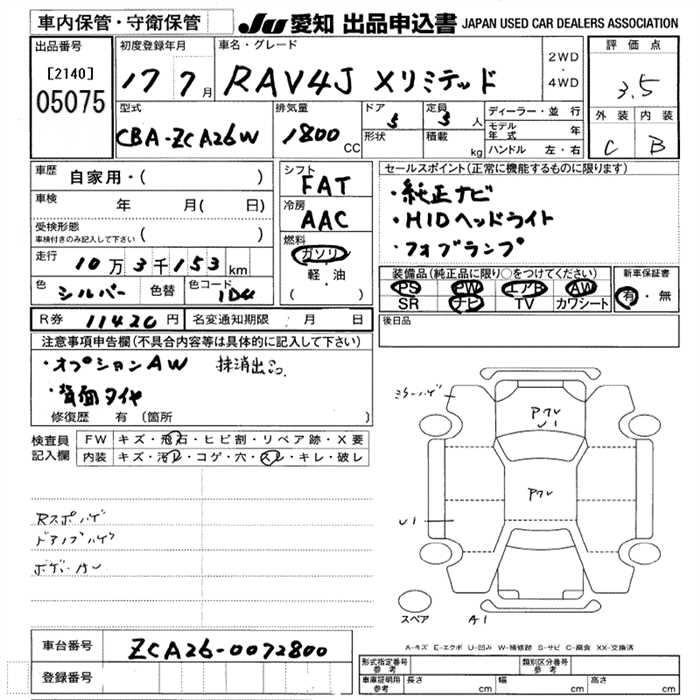 車内保管・守衛保管
JU 愛知 出品申込書 JAPAN USED CAR DEALERS ASSOCIATION
出品番号
[2140]
05075
初度登録年月
17 7月
車名・グレード
RAV4J Xリミテッド
2WD
・
4WD
評価点
3.5
外装 内装
C B
型式
CBA-ZCA26W
排気量
1800 CC
ドア 5
形状
定員 5 人
積載 kg
ディーラー・並行
モデル年式 年
ハンドル 左・右
車歴 自家用・( )
車検 年 月( 日)
受検形態
車検付きのみ記入して下さい ( )
走行 10万3千153km
色 シルバー 色替 色コード 1D4
シフト
FAT
冷房
AAC
燃料
ガソリン
軽・油
( )
セールスポイント(正常に機能するものに限ります)
・純正ナビ
・HIDヘッドライト
・フォグランプ
装備品(純正品に限り○をつけてください)
PS PW エアB AW
SR ナビ TV カワシート
新車保証書
有・無
R券 11420円 名変通知期限 月 日
後日品
注意事項申告欄(不具合内容等は具体的に記入して下さい)
・オプションAW 抹消出品
・背面タイヤ
修復歴 有 (箇所 )
検査員
記入欄
FW キズ・飛石・ヒビ割・リペア跡・X要
内装 キズ・汚レ・コゲ・穴・スレ・キレ・破レ
Rスポハゲ
ドアノブハゲ
ミラーハゲ
Pクレ
U1
Pクレ
U1
スペア
A1
A-キズ E-エクボ U-凹み W-補修跡 S-サビ C-腐食 XX-交換済
車台番号 ZCA26-0072800
登録番号
形式指定番号
参考
類別区分番号
参考
車庫証明用
参考
長さ cm 幅 cm 高さ cm